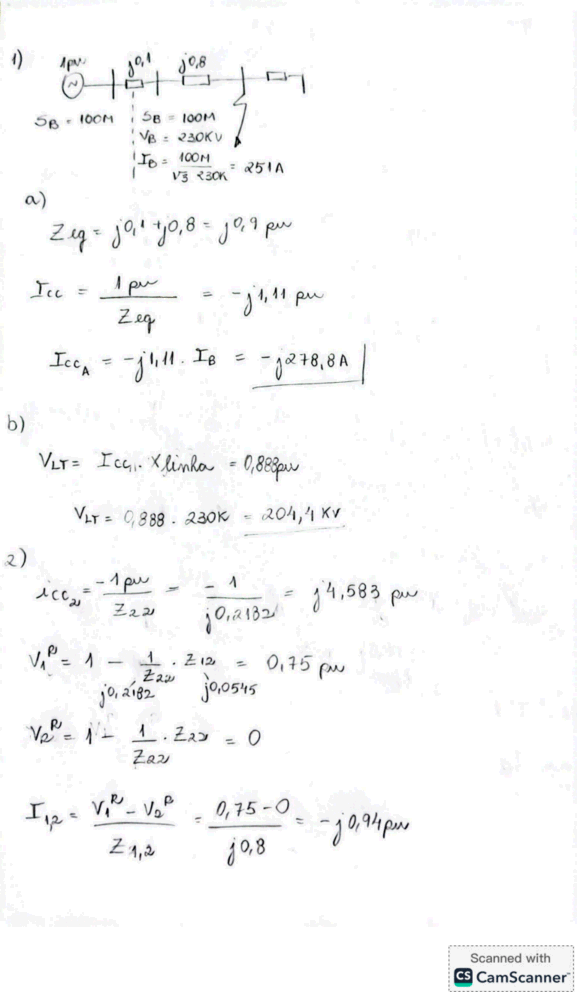 1)
1pu j0,1 j0,8
SB = 100M SB = 100M
VB = 230KV
IB = 100M / √3 230K = 251A
a)
Zeq = j0,1 + j0,8 = j0,9 pu
Icc = 1 pu / Zeq = -j1,11 pu
IccA = -j1,11 . IB = -j278,8A
b)
VLT = Icc . Xlinha = 0,888pu
VLT = 0,888 . 230K = 204,4 KV
2)
icc2 = -1 pu / Z22 = -1 / j0,2182 = j4,583 pu
V1R = 1 - 1 / Z22 . Z12 = 0,75 pu
j0,2182 j0,0545
V2R = 1 - 1 / Z22 . Z22 = 0
I1,2 = V1R - V2R / Z1,2 = 0,75 - 0 / j0,8 = -j0,94 pu
Scanned with
CS CamScanner